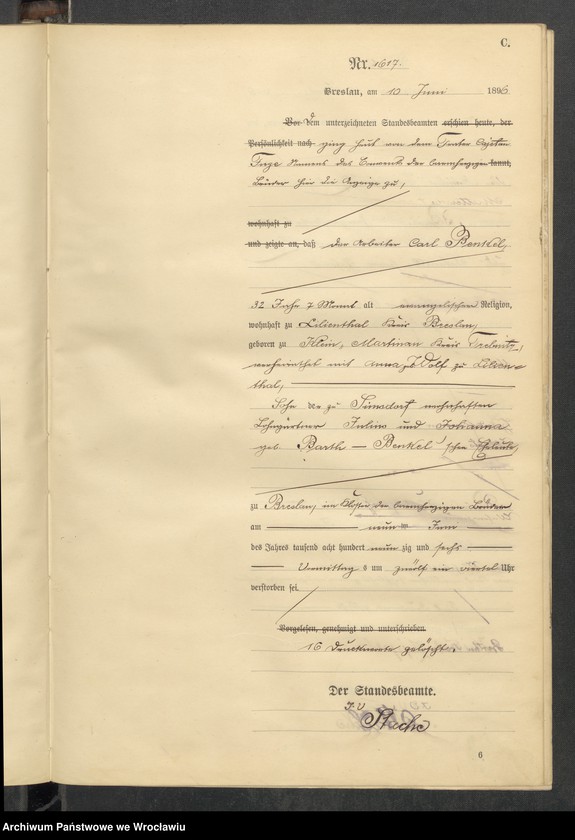 C.
Nr. 1617.
Breslau, am 10 Juni 1896
Vor dem unterzeichneten Standesbeamten erschien heute, der
Persönlichkeit nach ging heut von dem Frater Cajetan
Namens des Convents der barmherzigen kannt,
Brüder hier die Anzeige zu,
wohnhaft zu
und zeigte an, daß der Arbeiter Carl Benkel,
32 Jahre 7 Monat alt evangelischer Religion,
wohnhaft zu Lilienthal Kreis Breslau,
geboren zu Klein, Martinau Kreis Trebnitz,
verheirathet mit Anna geb Wolf zu Lilien-
thal,
Sohn der zu Simsdorf wohnhaften
Lohngärtner Julius und Johanna
geb. Barth — Benkel'schen Eheleute,
zu Breslau, im Kloster der barmherzigen Brüder
am neun ten Juni
des Jahres tausend acht hundert neun zig und sechs
Vormittag s um zwölf ein viertel Uhr
verstorben sei.
Vorgelesen, genehmigt und unterschrieben
16 Druckworte gelöscht.
Der Standesbeamte.
I. V
6
Archiwum Państwowe we Wrocławiu